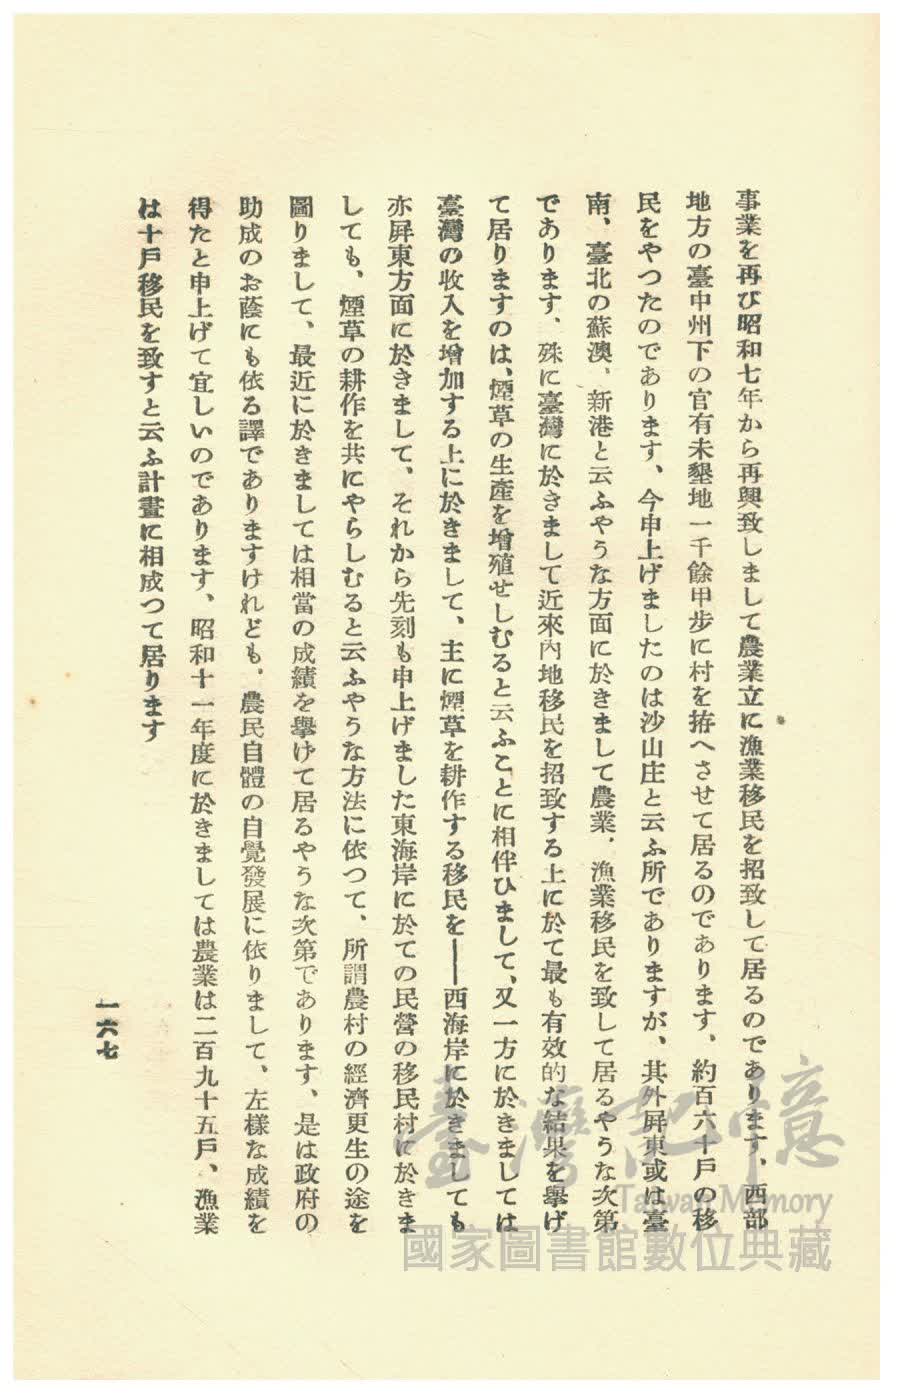 事業を再び昭和七年から再興致しまして農業立に漁業移民を招致して居るのであります、西部
地方の臺中州下の官有未墾地一千餘甲步に村を拵へさせて居るのであります、約百六十戶の移
民をやつたのであります、今申上げましたのは沙山庄と云ふ所でありますが、其外屏東或は臺
南、臺北の蘇澳、新港と云ふやうな方面に於きまして農業、漁業移民を致して居るやうな次第
であります、殊に臺灣に於きまして近來內地移民を招致する上に於て最も有效的な結果を擧げ
て居りますのは、煙草の生產を增殖せしむると云ふことに相伴ひまして、又一方に於きましては
臺灣の收入を增加する上に於きまして、主に煙草を耕作する移民を――西海岸に於きましても
亦屏東方面に於きまして、それから先刻も申上げました東海岸に於ての民營の移民村に於きま
しても、煙草の耕作を共にやらしむると云ふやうな方法に依つて、所謂農村の經濟更生の途を
圖りまして、最近に於きましては相當の成績を擧げて居るやうな次第であります、是は政府の
助成のお蔭にも依る譯でありますけれども、農民自體の自覺發展に依りまして、左樣な成績を
得たと申上げて宜しいのであります、昭和十一年度に於きましては農業は二百九十五戶、漁業
は十戶移民を致すと云ふ計畫に相成つて居ります
一六七
臺灣記憶
Taiwan Memory
國家圖書館數位典藏